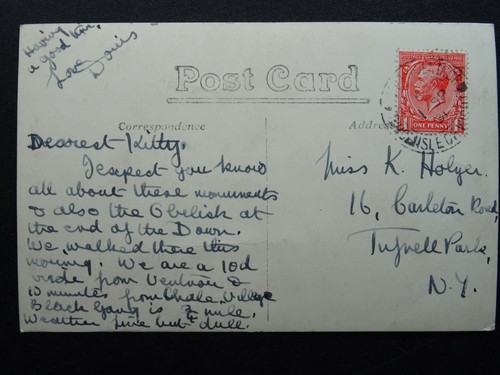 Having
a good time.
Love
Doris
Post Card
Correspondence
Address
ONE PENNY
Dearest Kitty.
I expect you know
all about these monuments
& also the Obelisk at
the end of the Down.
We walked there this
morning. We are a 10d
ride from Ventnor &
10 minutes from Chale Village
Black Gang is ¾ mile.
Weather fine but dull.
Miss K. Holyer.
16, Carleton Road,
Tufnell Park,
N.Y.